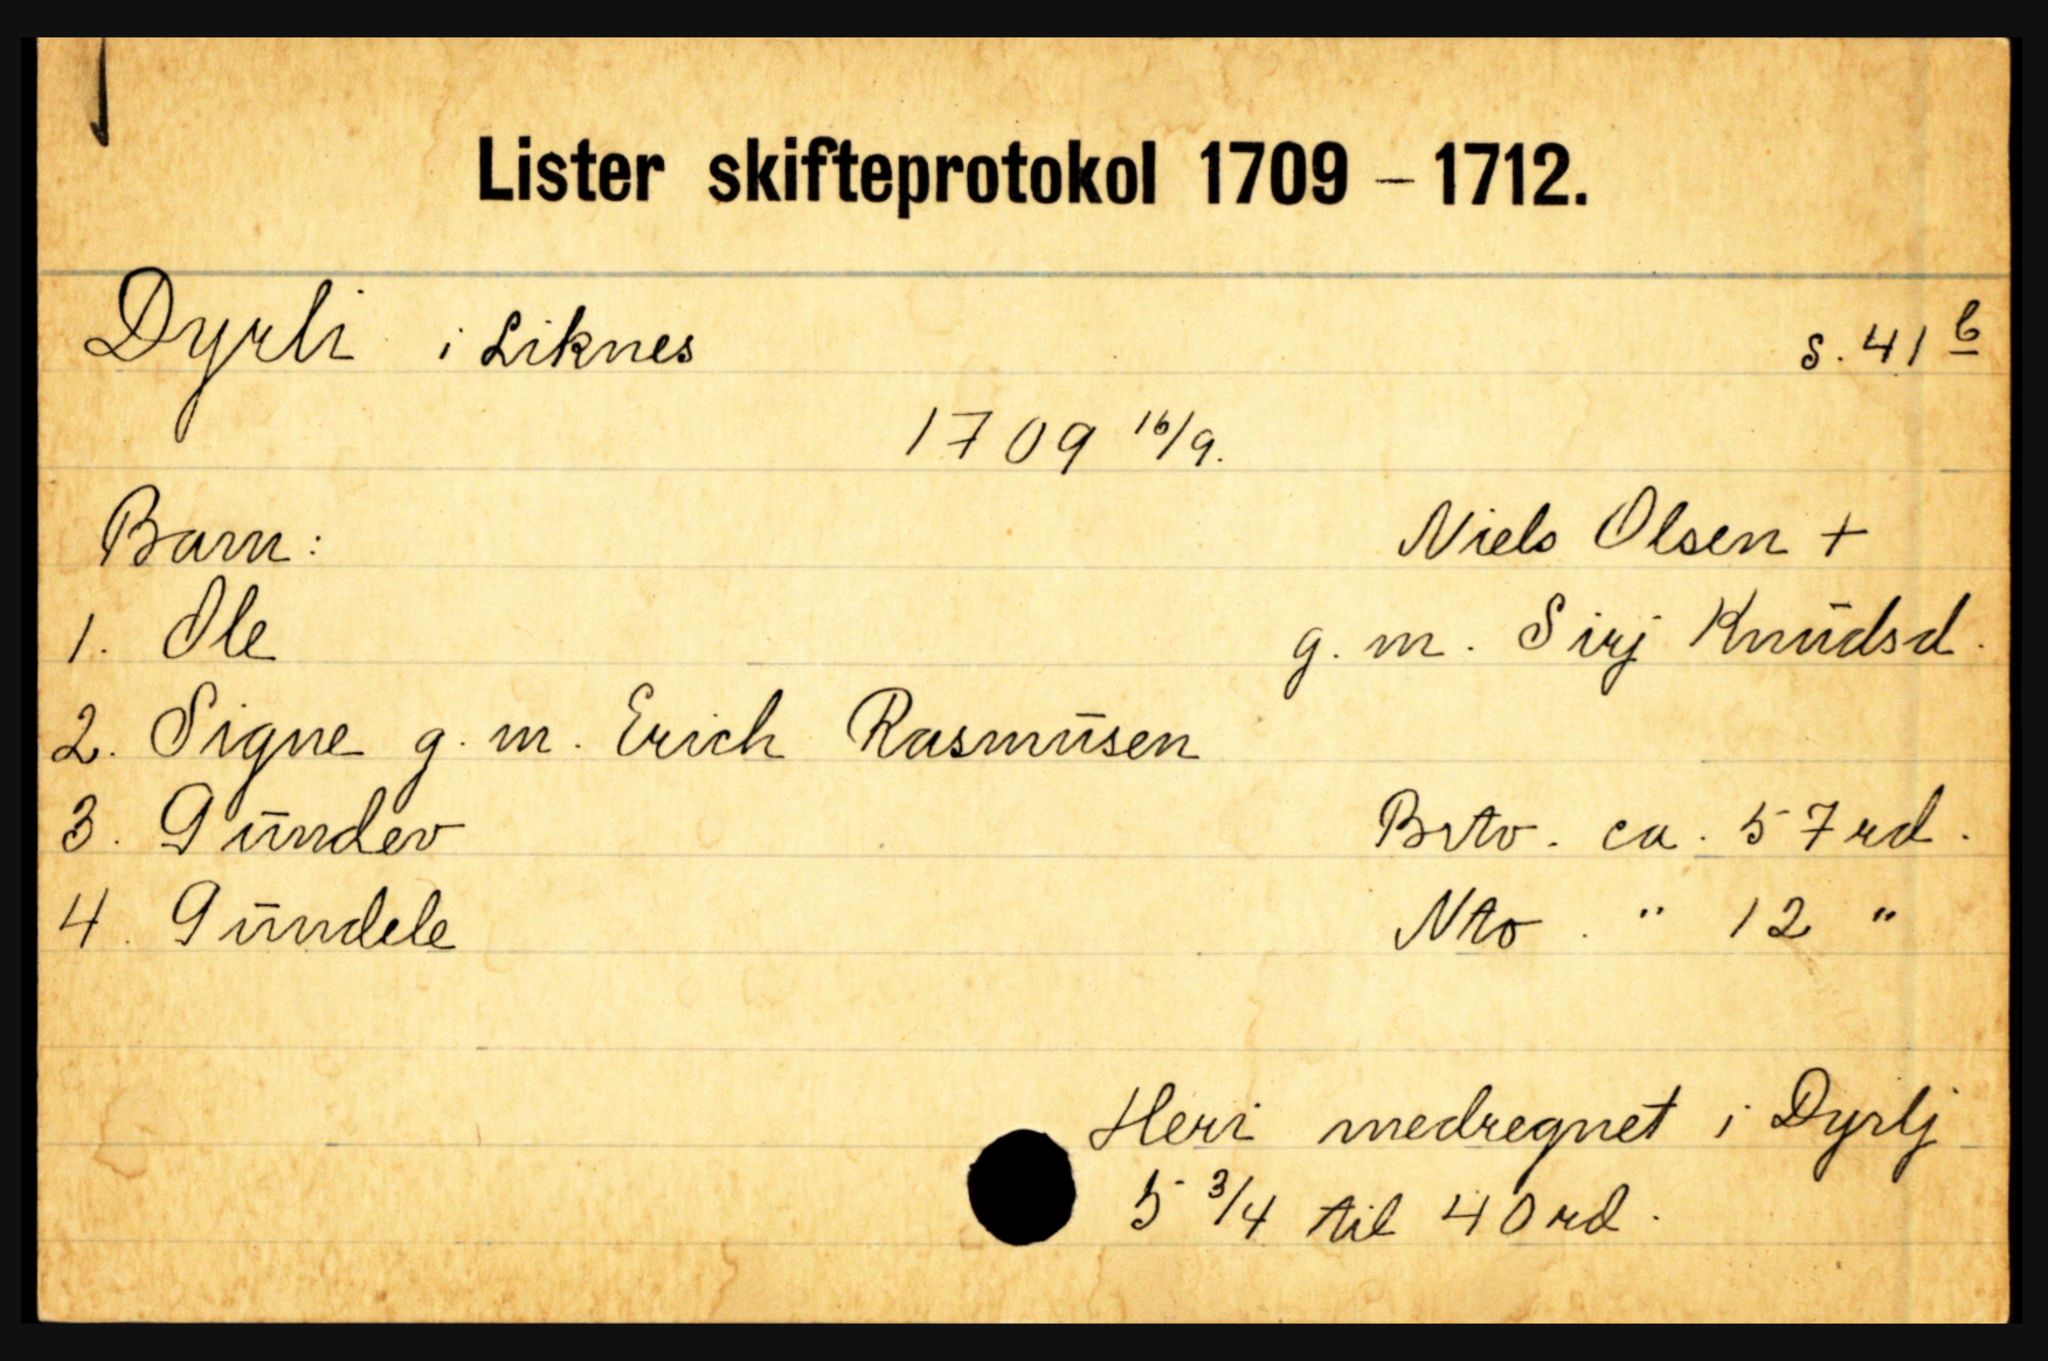 Lister skifteprotokol 1709 – 1712.
Dyrli i Liknes s. 41 b
1709 16/9.
Barn: Niels Olsen +
1. Ole g. m. Sirj Knūdsd.
2. Signe g. m. Erich Rasmūsen
3. Gūndev Brto. ca. 57 rd.
4. Gūndele Nto. " 12 "
Heri medregnet i Dyrlj
5 3/4 til 40 rd.